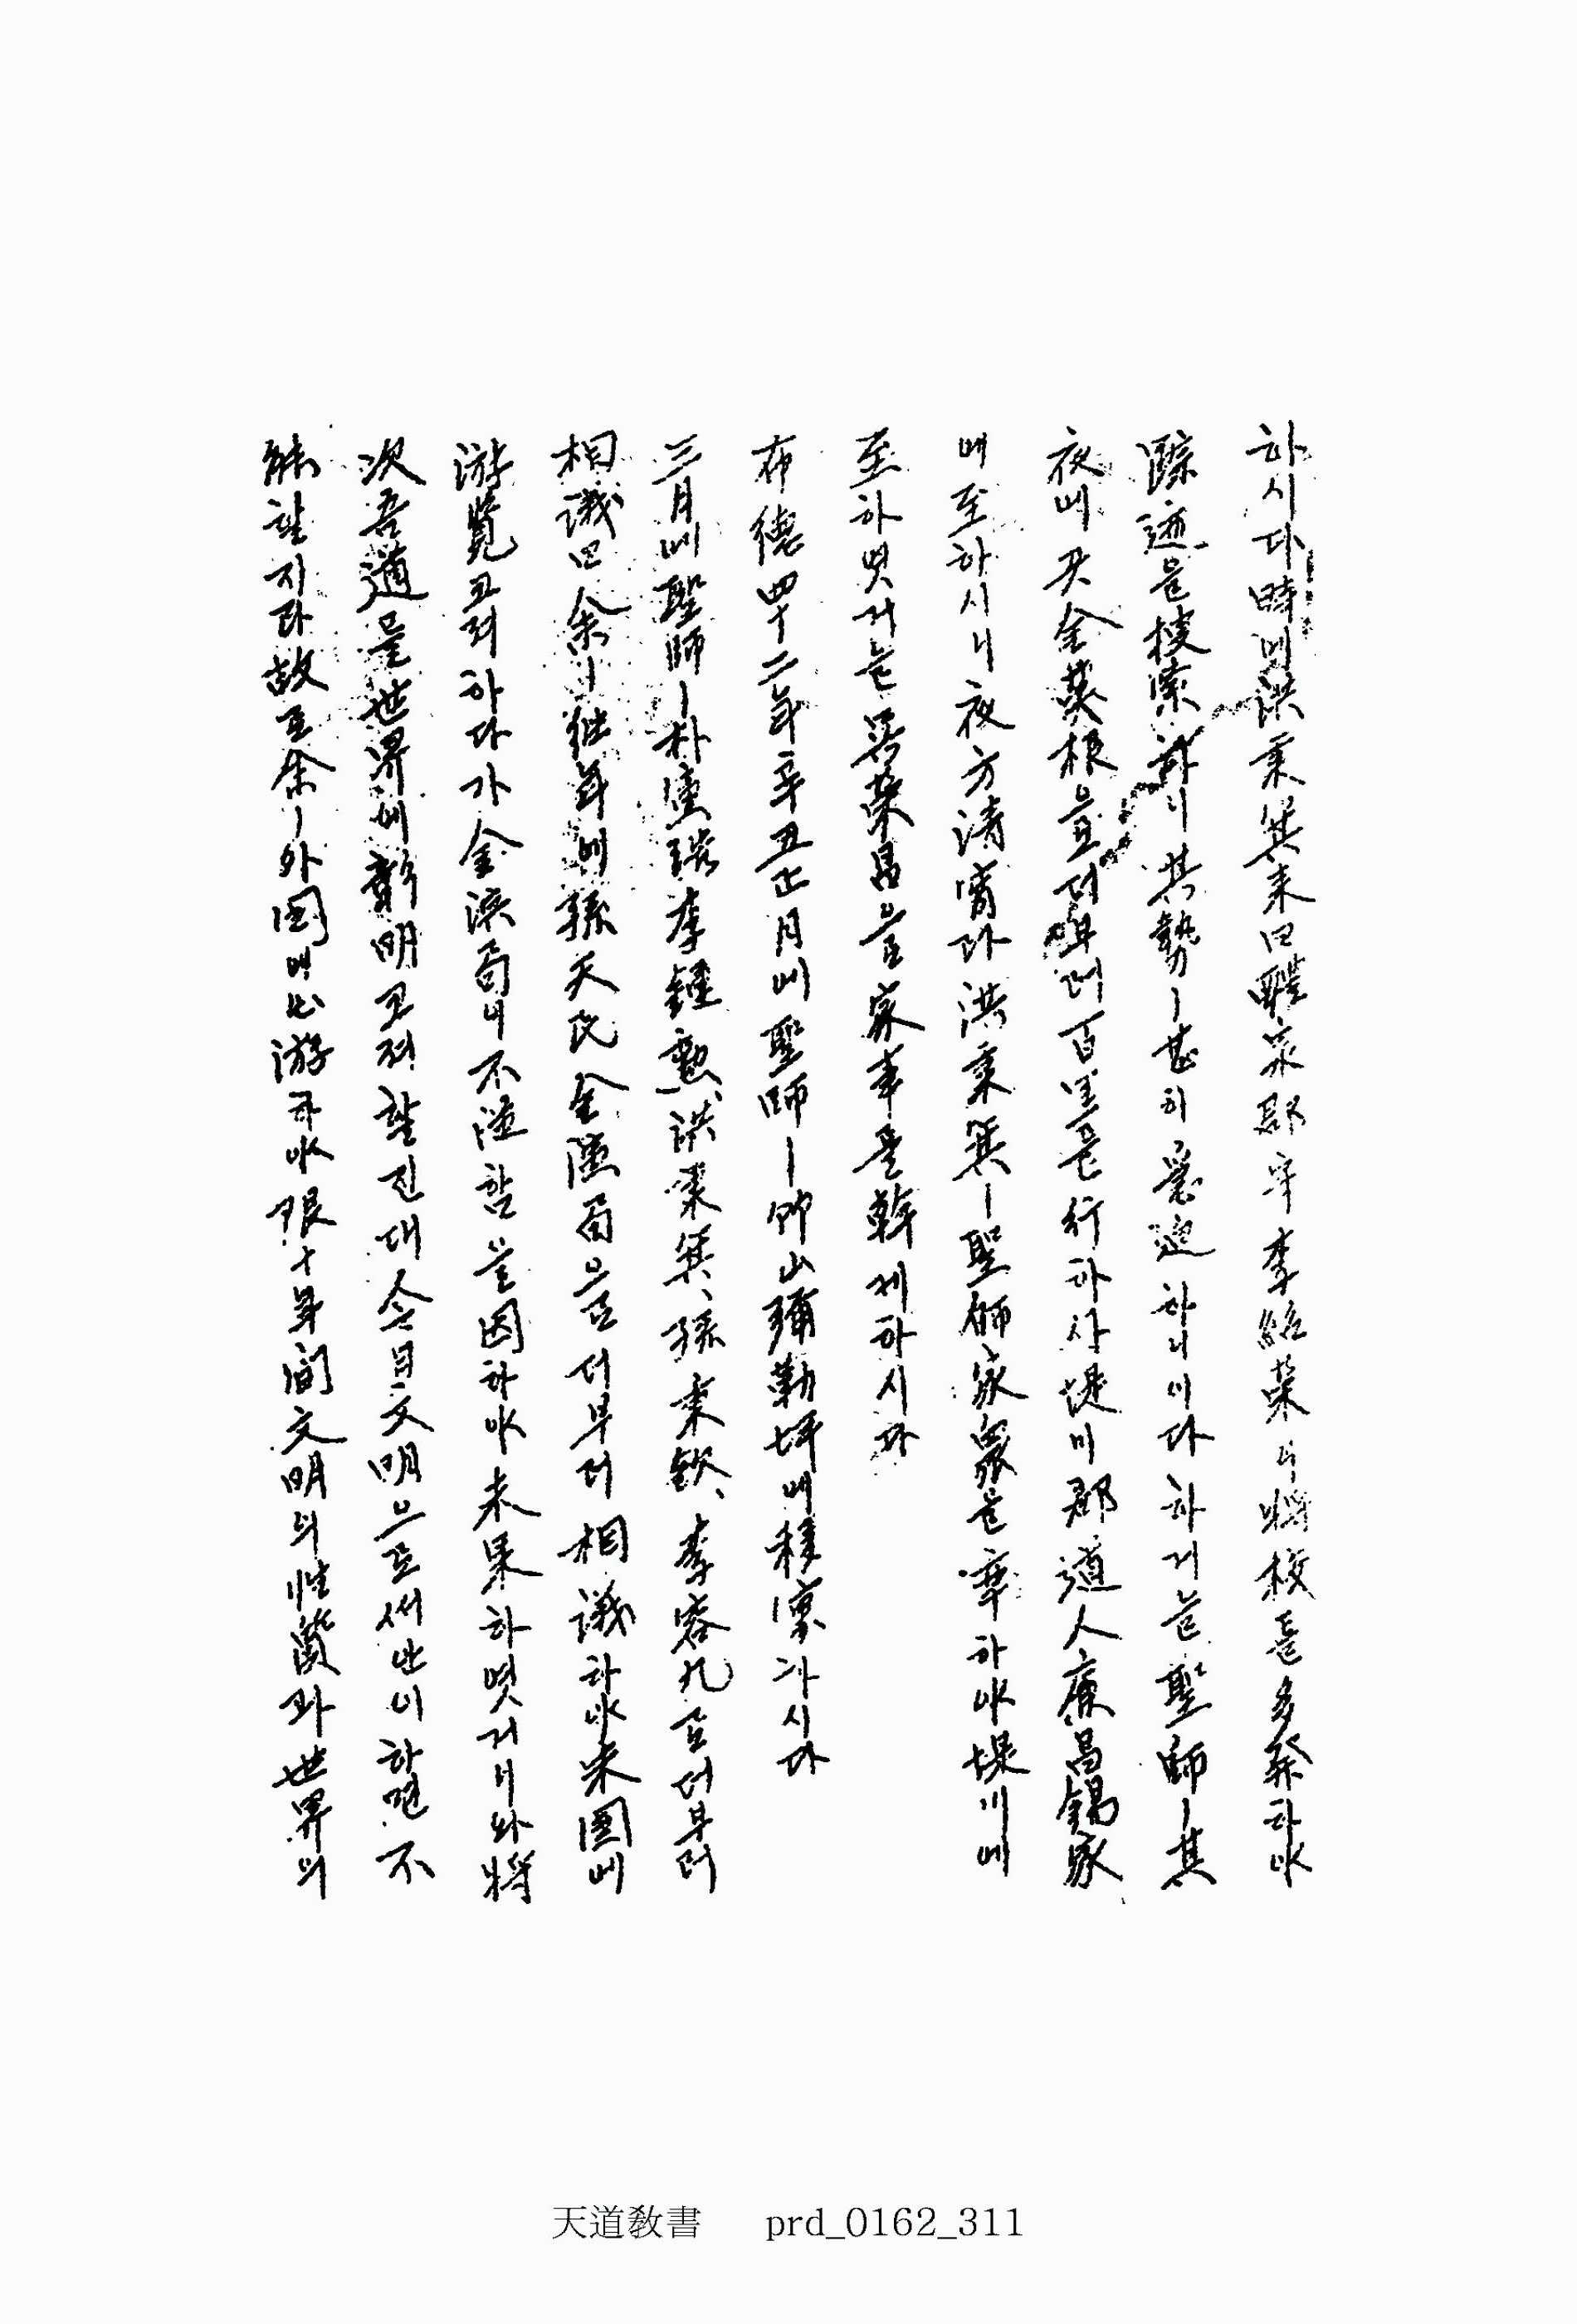 하시다 時에 洪秉箕 來曰 醴泉郡守 李紹榮이 將校를 多發하야
踪迹을 搜索하니 其勢ㅣ 甚히 急迫하니이다 하거늘 聖師ㅣ 其
夜에 곳 金英根으로더부러 百里를 行하사 堤川郡 道人 廉昌錫家
에 至하시니 夜方淸宵라 洪秉箕ㅣ 聖師家眷을 率하야 堤川에
至하엿거늘 榮昌으로 家事를 幹케하시다
布德四十二年辛丑正月에 聖師ㅣ 山彌勒坪에 移寓하시다
三月에 聖師ㅣ 朴寅浩 李鍾勳、洪秉箕、孫秉欽、李容九로더부러
相議曰 余ㅣ 往年에 孫天民 金演局으로더부러 相議하야 米國에
游覽코져하다가 金演局의 不應함을因하야 未果하엿거니와 將
次 吾道를 世界에 彰明코져할진대 今日文明으로써 안이하면 不
能할지라 故로 余ㅣ 外國에 出游하야 限十年間 文明의 性質과 世界의
天道敎書 prd_0162_311